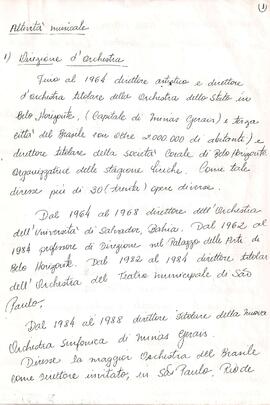 (1)
Attività musicale
1) Direzione d'Orchestra
Fino al 1964 direttore artistico e direttore
d'orchestra titolare della Orchestra dello Stato, in
Belo Horizonte, (Capitale di Minas Gerais) e terza
città del Brasile con oltre 2.000.000 di abitanti) e
direttore titolare della società Corale di Belo Horizonte.
Organizzatore delle stagione liriche. Come tale
diresse più di 30 (trenta) opere diverse.
Dal 1964 al 1968 direttore dell'Orchestra
dell'Università di Salvador, Bahia. Dal 1962 al
1984 professore di Direzione nel Palazzo delle Arte di
Belo Horizonte. Dal 1982 al 1984 direttore titolar
dell'Orchestra del Teatro municipale di São
Paulo.
Dal 1984 al 1988 direttore titolare della nuova
Orchestra Sinfonica di Minas Gerais.
Diresse la maggior Orchestra del Brasile
come direttore invitato, in São Paulo, Rio de